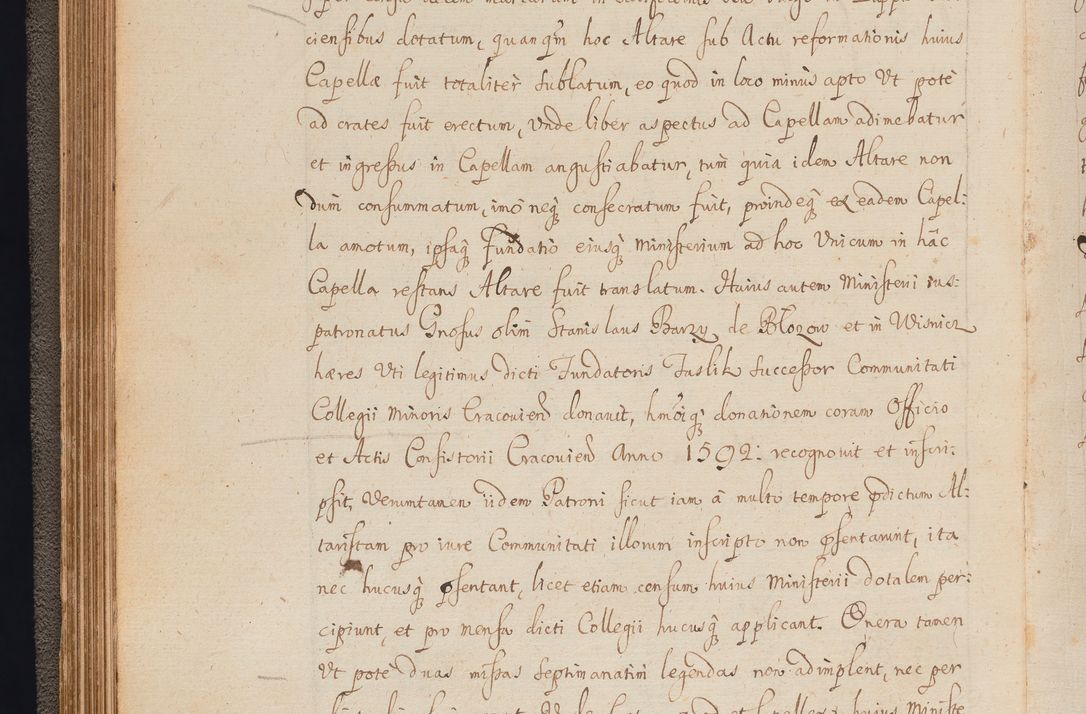 ciensibus dotatum, quanqm̃ hoc Altare sub Actu reformationis huius
Capellæ fuit totaliter sublatum, eo quod in loco minus apto Vt potè
ad crates fuit erectum, Vnde liber aspectus ad Capellam adimebatur
et ingressus in Capellam angustiabatur, tum quia idem Altare non
dum consummatum, imò neq́; consecratum fuit, proindeq́; ex eadem Capel:
la amotum, ipsaq́; Fundatio eiusq́; Ministerium ad hoc Vnicum in hac
Capella restans Altare fuit translatum. Huius autem Ministerii ius:
patronatus Gnosus olim Stanislaus Barzy de Błozow et in Wisnicz
hæres Vti legitimus dicti Fundatoris Jaslik Successor Communitati
Collegii Minoris Cracovien̄ donavit, hmõiq́; donationem coram Officio
et Actis Consistorii Cracovien̄ Anno 1592: recognovit et inscri:
psit, Verumtamen iidem Patroni sicut iam à multo tempore p̃dictum Al:
taristam pro iure Communitati illorum inscripto non p̃sentarunt, ita
nec hucusq́; p̃sentant, licet etiam censum huius Ministerii dotalem per:
cipiunt, et pro mensa dicti Collegii hucusq́; applicant. Onera tamen
Vt potè duas missas septimanatim legendas non adimplent, nec per